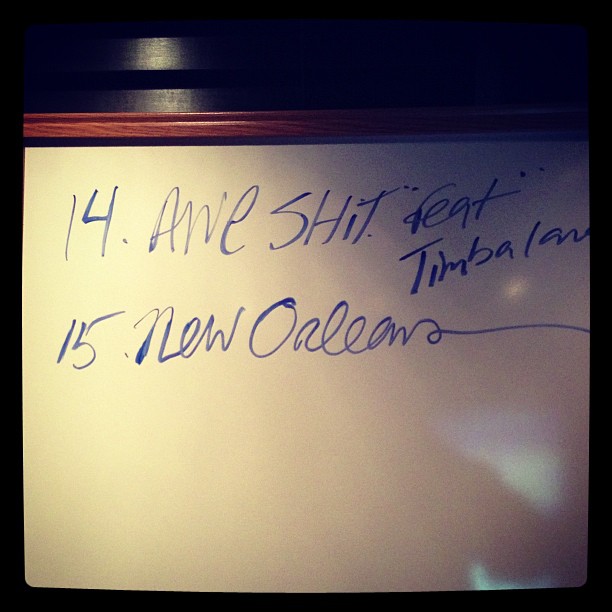 14. AWE SHIT. "feat"
Timbalan
15. New Orleans